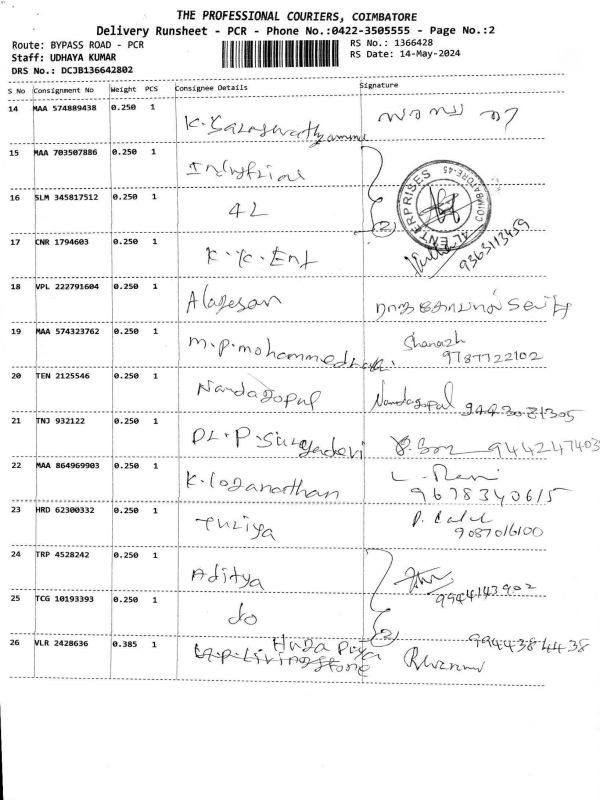 THE PROFESSIONAL COURIERS, COIMBATORE
Delivery Runsheet - PCR - Phone No.:0422-3505555 - Page No.:2
Route: BYPASS ROAD - PCR
RS No.: 1366428
Staff: UDHAYA KUMAR
RS Date: 14-May-2024
DRS No.: DCJB136642802
S No Consignment No Weight PCS Consignee Details Signature
14 MAA 574889438 0.250 1 K. Saraswathyamma
15 MAA 703507886 0.250 1 Industrial
16 SLM 345817512 0.250 1 42 2
ENTERPRISES COIMBATORE-45
17 CNR 1794603 0.250 1 K.K. Ent 9363113459
18 VPL 222791604 0.250 1 Alagesan
19 MAA 574323762 0.250 1 M.P. mohammed 9787722102
20 TEN 2125546 0.250 1 Nandagopal Nandagopal
21 TNJ 932122 0.250 1 9442474035
22 MAA 864969903 0.250 1 K. loganathan 9678340615
23 HRD 62300332 0.250 1 9087016100
24 TRP 4528242 0.250 1 Aditya 9944143902
25 TCG 10193393 0.250 1 do 2
26 VLR 2428636 0.385 1 9944384438